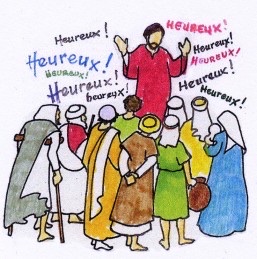 Heureux!
Heureux!
Heureux!
Heureux!
Heureux!
HEUREUX!
Heureux!
Heureux!
Heureux!
Heureux!